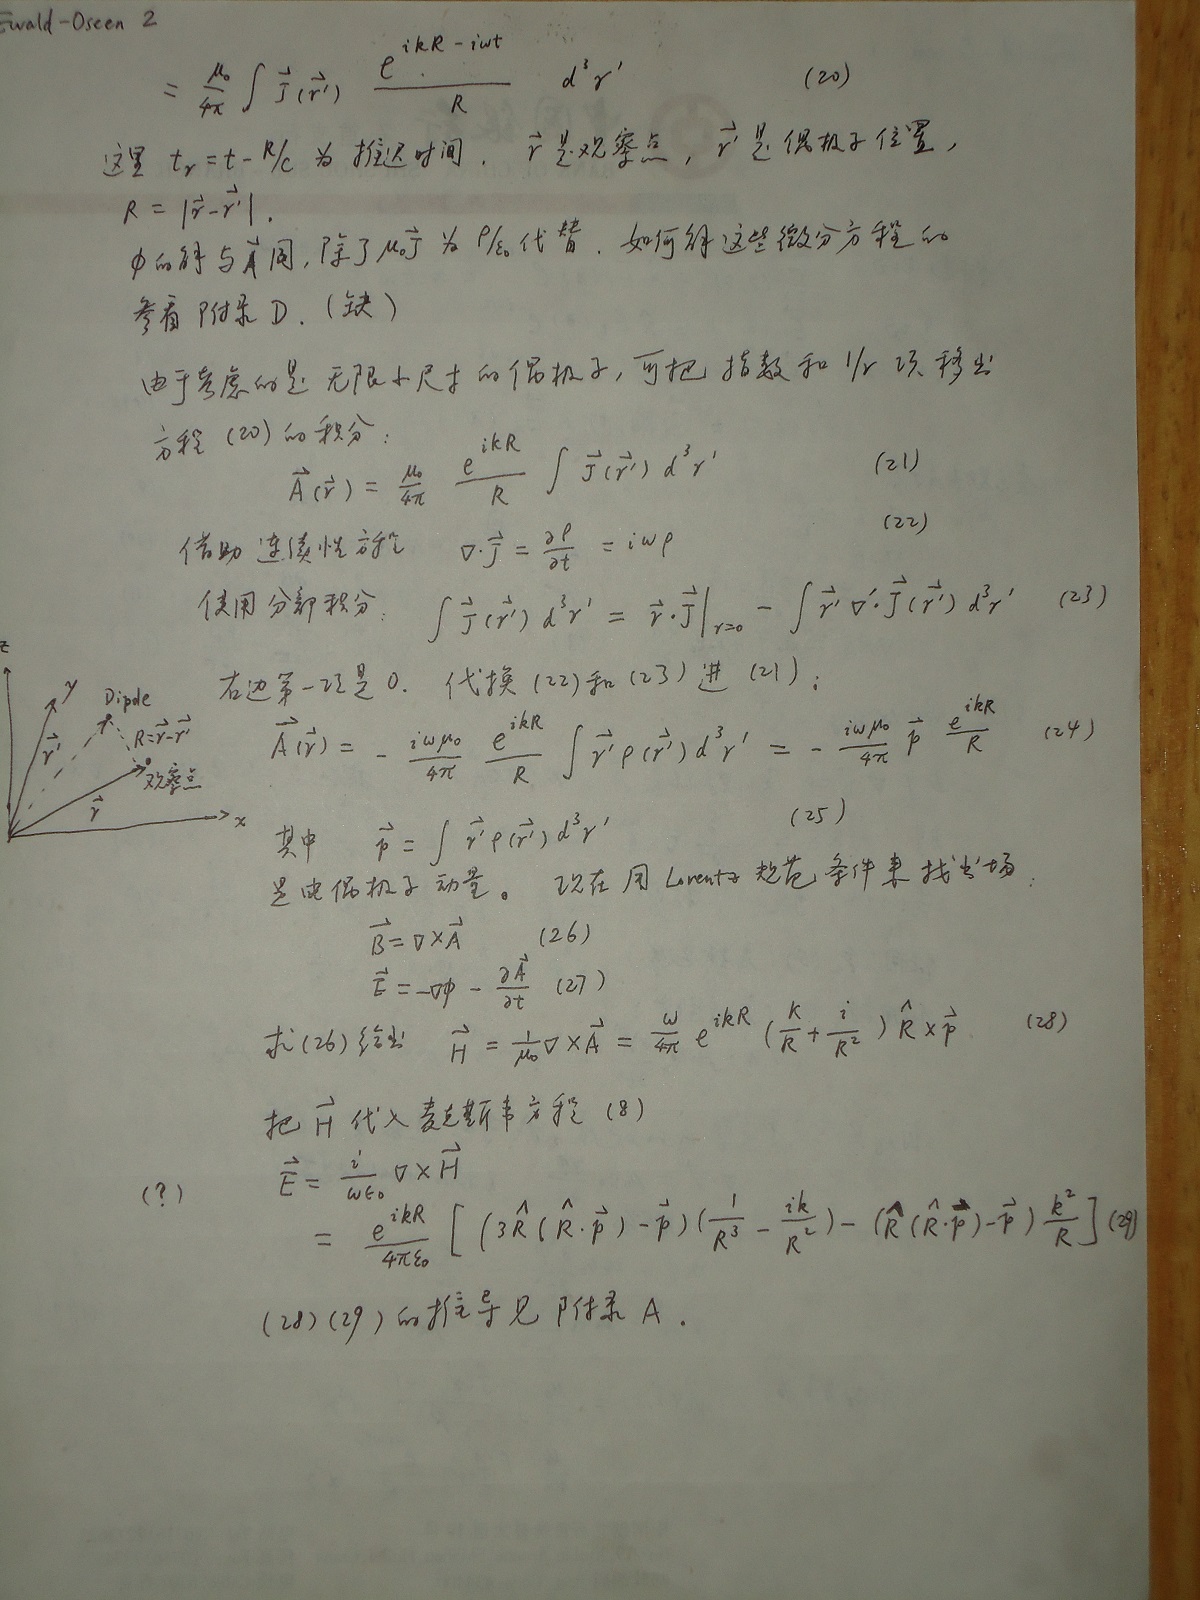 Ewald-Oseen 2
= μ₀/4π ∫ J⃗(r⃗') e^{ikR-iwt}/R d³r' (20)
这里 tᵣ=t-R/c 为推迟时间. r⃗是观察点, r⃗'是偶极子位置,
R = |r⃗-r⃗'|.
φ的解与A⃗同, 除了μ₀J⃗ 为 ρ/ε₀ 代替. 如何解这些微分方程的
参看附录D. (缺)
由于考虑的是无限小尺寸的偶极子, 可把指数和1/r项移出
方程(20)的积分:
A⃗(r⃗) = μ₀/4π e^{ikR}/R ∫ J⃗(r⃗') d³r' (21)
借助连续性方程 ∇·J⃗ = ∂ρ/∂t = iωρ (22)
使用分部积分: ∫ J⃗(r⃗') d³r' = r⃗·J⃗|_{r=0} - ∫ r⃗' ∇'·J⃗(r⃗') d³r' (23)
右边第一项是0. 代换(22)和(23)进(21):
A⃗(r⃗) = - iωμ₀/4π e^{ikR}/R ∫ r⃗'ρ(r⃗')d³r' = - iωμ₀/4π p⃗ e^{ikR}/R (24)
z
y
Dipole
r⃗'
R=r⃗-r⃗'
观察点
r⃗
x
其中 p⃗ = ∫ r⃗'ρ(r⃗')d³r' (25)
是电偶极子动量。 现在用Lorentz规范条件来找出场:
B⃗=∇×A⃗ (26)
E⃗=-∇φ - ∂A⃗/∂t (27)
求(26)给出 H⃗ = 1/μ₀ ∇×A⃗ = ω/4π e^{ikR} (k/R + i/R²) R̂×p⃗ (28)
把H⃗代入麦克斯韦方程(8)
E⃗ = i/ωε₀ ∇×H⃗
(?)
= e^{ikR}/4πε₀ [(3R̂(R̂·p⃗)-p⃗)(1/R³ - ik/R²) - (R̂(R̂·p⃗)-p⃗) k²/R] (29)
(28)(29)的推导见附录A.